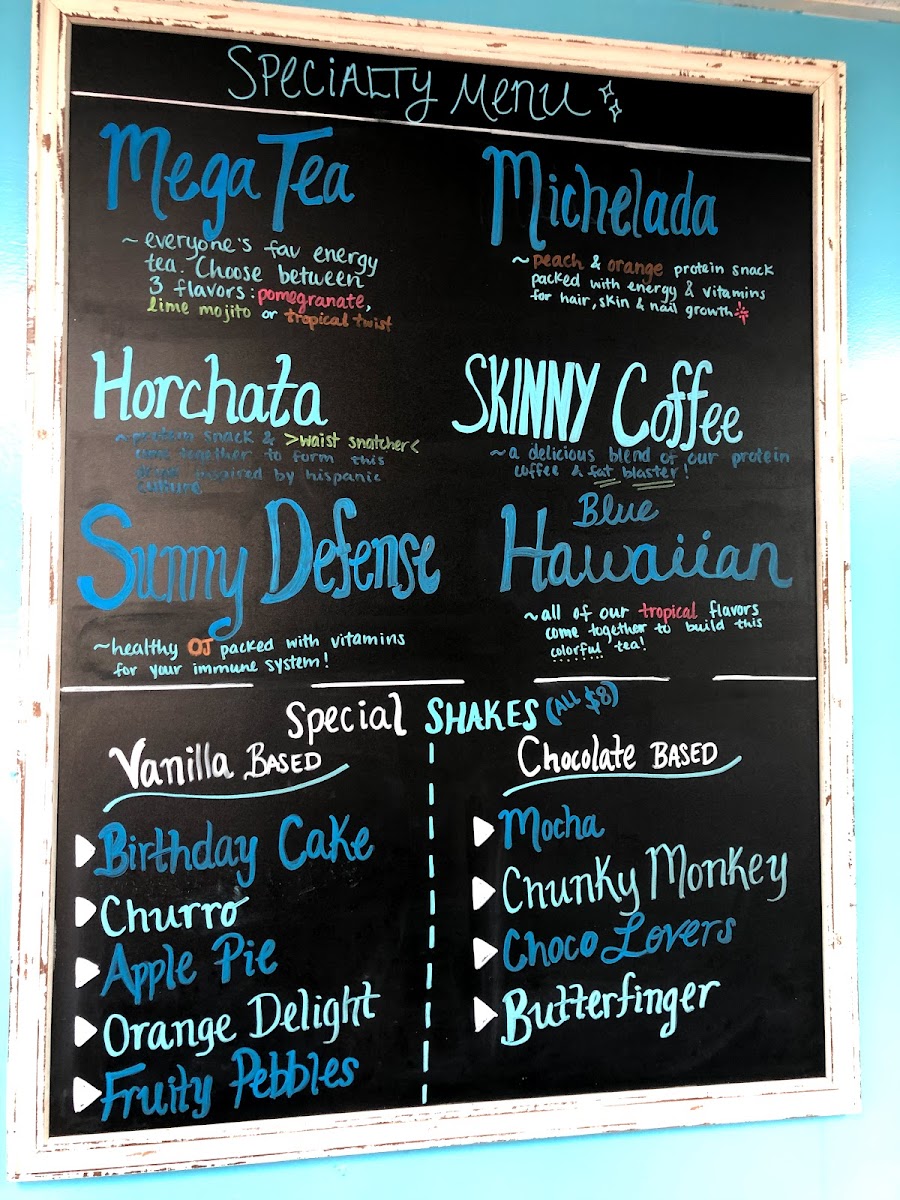 SPECIALTY MENU
Mega Tea
~ everyone's fav energy
tea. Choose between
3 flavors: pomegranate,
lime mojito or tropical twist
Michelada
~ peach & orange protein snack
packed with energy & vitamins
for hair, skin & nail growth
Horchata
~ protein snack & >waist snatcher<
together to form this
inspired by hispanic
culture
SKINNY Coffee
~ a delicious blend of our protein
coffee & fat blaster!
Sunny Defense
~healthy OJ packed with vitamins
for your immune system!
Blue
Hawaiian
~all of our tropical flavors
come together to build this
colorful tea!
Special SHAKES (ALL $8)
Vanilla BASED
Birthday Cake
Churro
Apple Pie
Orange Delight
Fruity Pebbles
Chocolate BASED
Mocha
Chunky Monkey
Choco Lovers
Butterfinger